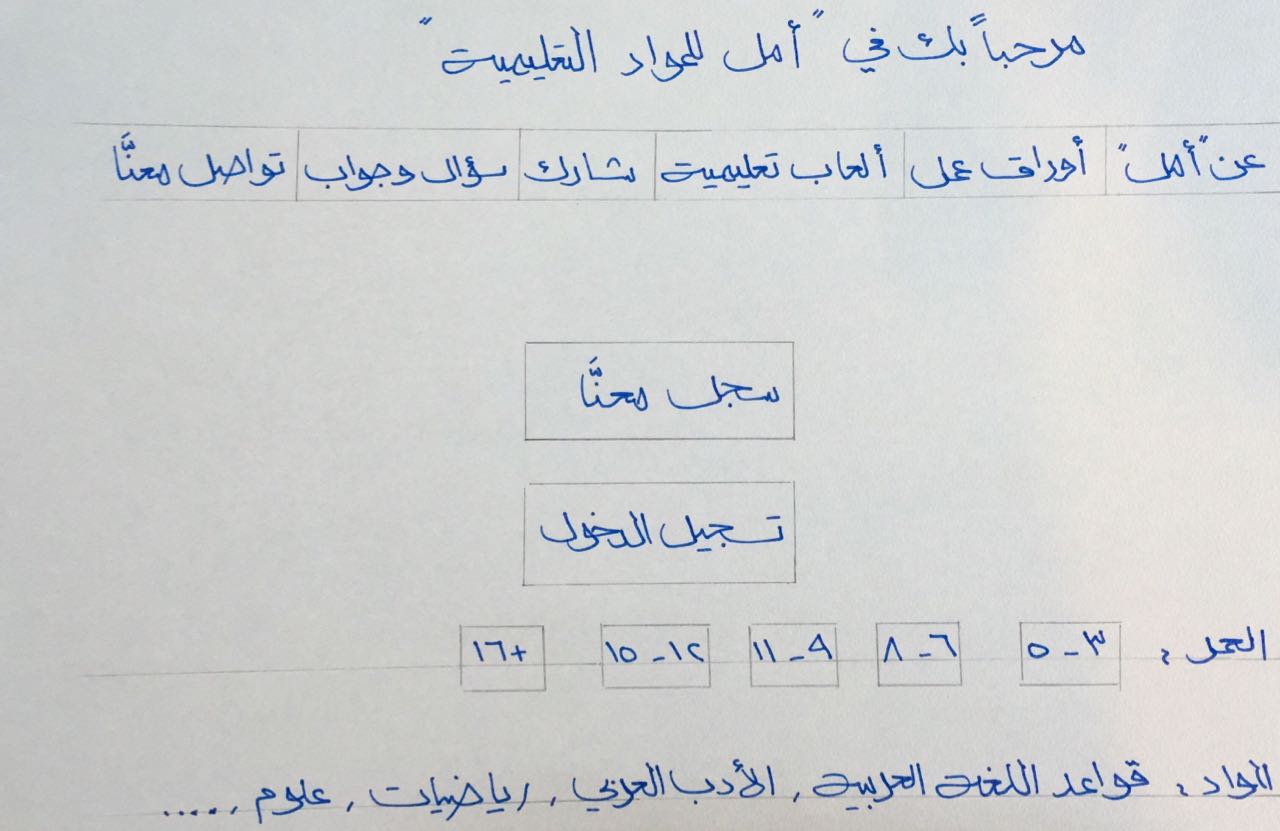 مرحباً بك في "أمل للمواد التعليمية"
عن "أمل" أوراق عمل ألعاب تعليمية شارك سؤال وجواب تواصل معنَّا
سجل معنَّا
تسجيل الدخول
العمر : ٣-٥ ٦-٨ ٩-١١ ١٢-١٥ +١٦
المواد : قواعد اللغة العربية , الأدب العربي , رياضيات , علوم , .....